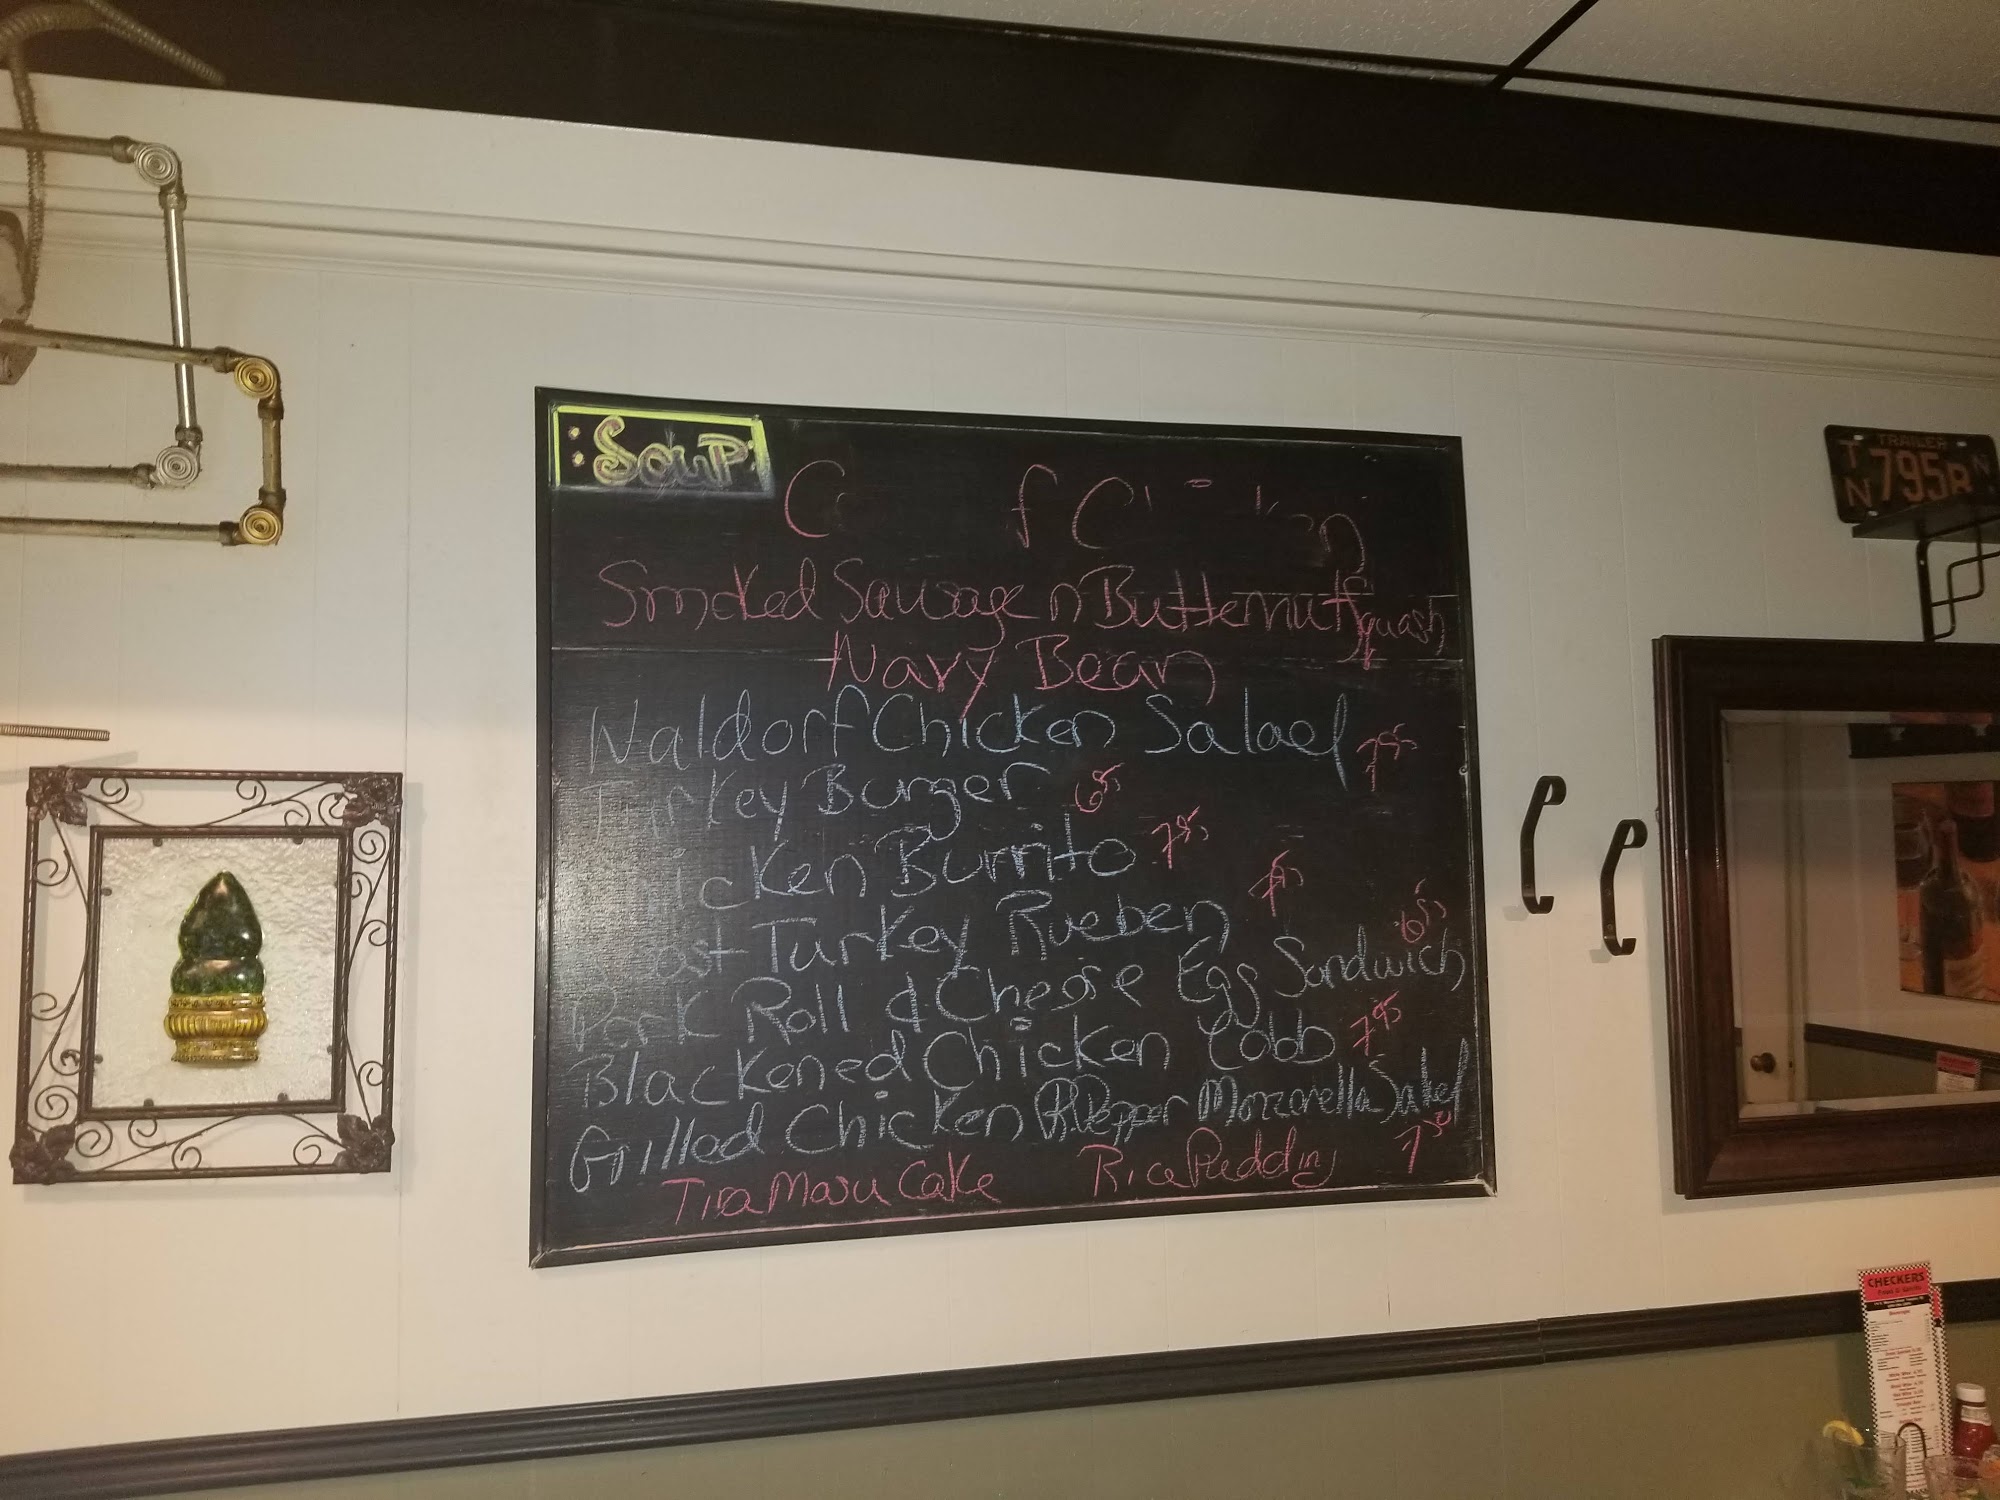 Soup
Smoked Sausage n Butternut Squash
Navy Bean
Waldorf Chicken Salad 7 95
Turkey Burger 6 95
Chicken Burrito 7 95
Roast Turkey Rueben 7 95
Pork Roll & Cheese Egg Sandwich 6 95
Blackened Chicken Cobb 7 95
Grilled Chicken R Pepper Mozzarella Salad 7 50
Tira Masu Cake Rice Pudding
TRAILER
TN 795R
CHECKERS